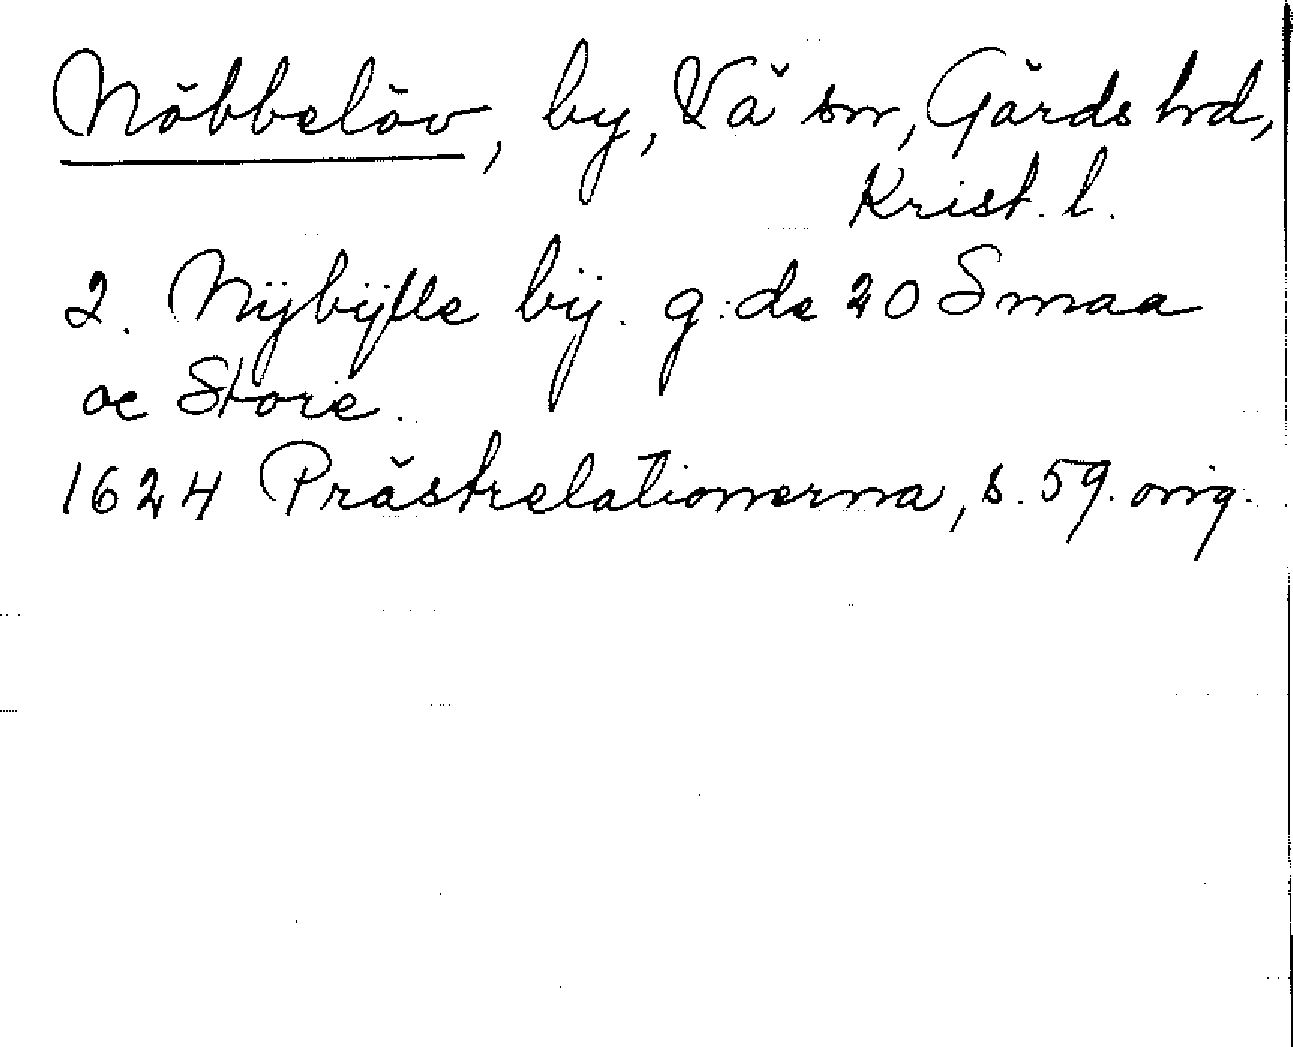 Nöbbelöv, by, Vä sn, Gärds hd,
Krist. l.
2. Nÿbÿlle bÿ. g:de 20 Smaa
oc Store.
1624 Prästrelationerna, s. 59. orig.